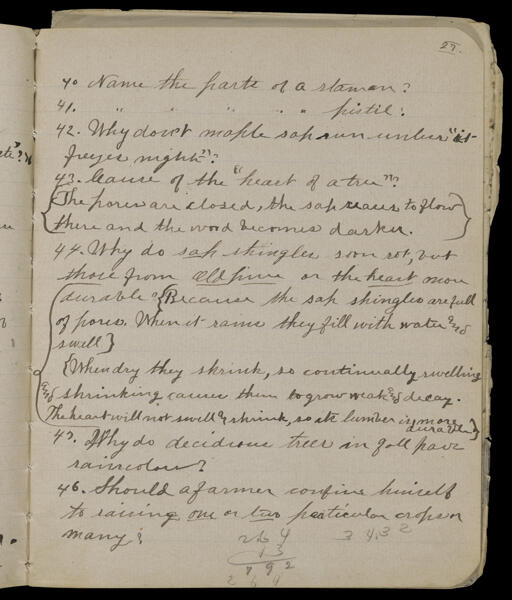 27.
40 Name the parts of a stamen?
41. " " " " " pistil?
42. Why don't maple sap run unless "it
freezes nights"?
43. Cause of the "heart of a tree"?
{The pores are closed, the sap ceases to flow
there and the wood becomes darker.}
44. Why do sap shingles soon rot, but
those from old pine or the heart more
durable? {Because the sap shingles are full
of pores. When it rains they fill with water and
swell}
{When dry they shrink, so continually swelling
and shrinking cause them to grow weak and decay.
The heart will not swell & shrink, so its lumber is more
durable}
45. Why do deciduous trees in fall
raincolou?
46. Should a farmer confine himself
to raising one or two particular crops or
many?
264
13
792
264
3432